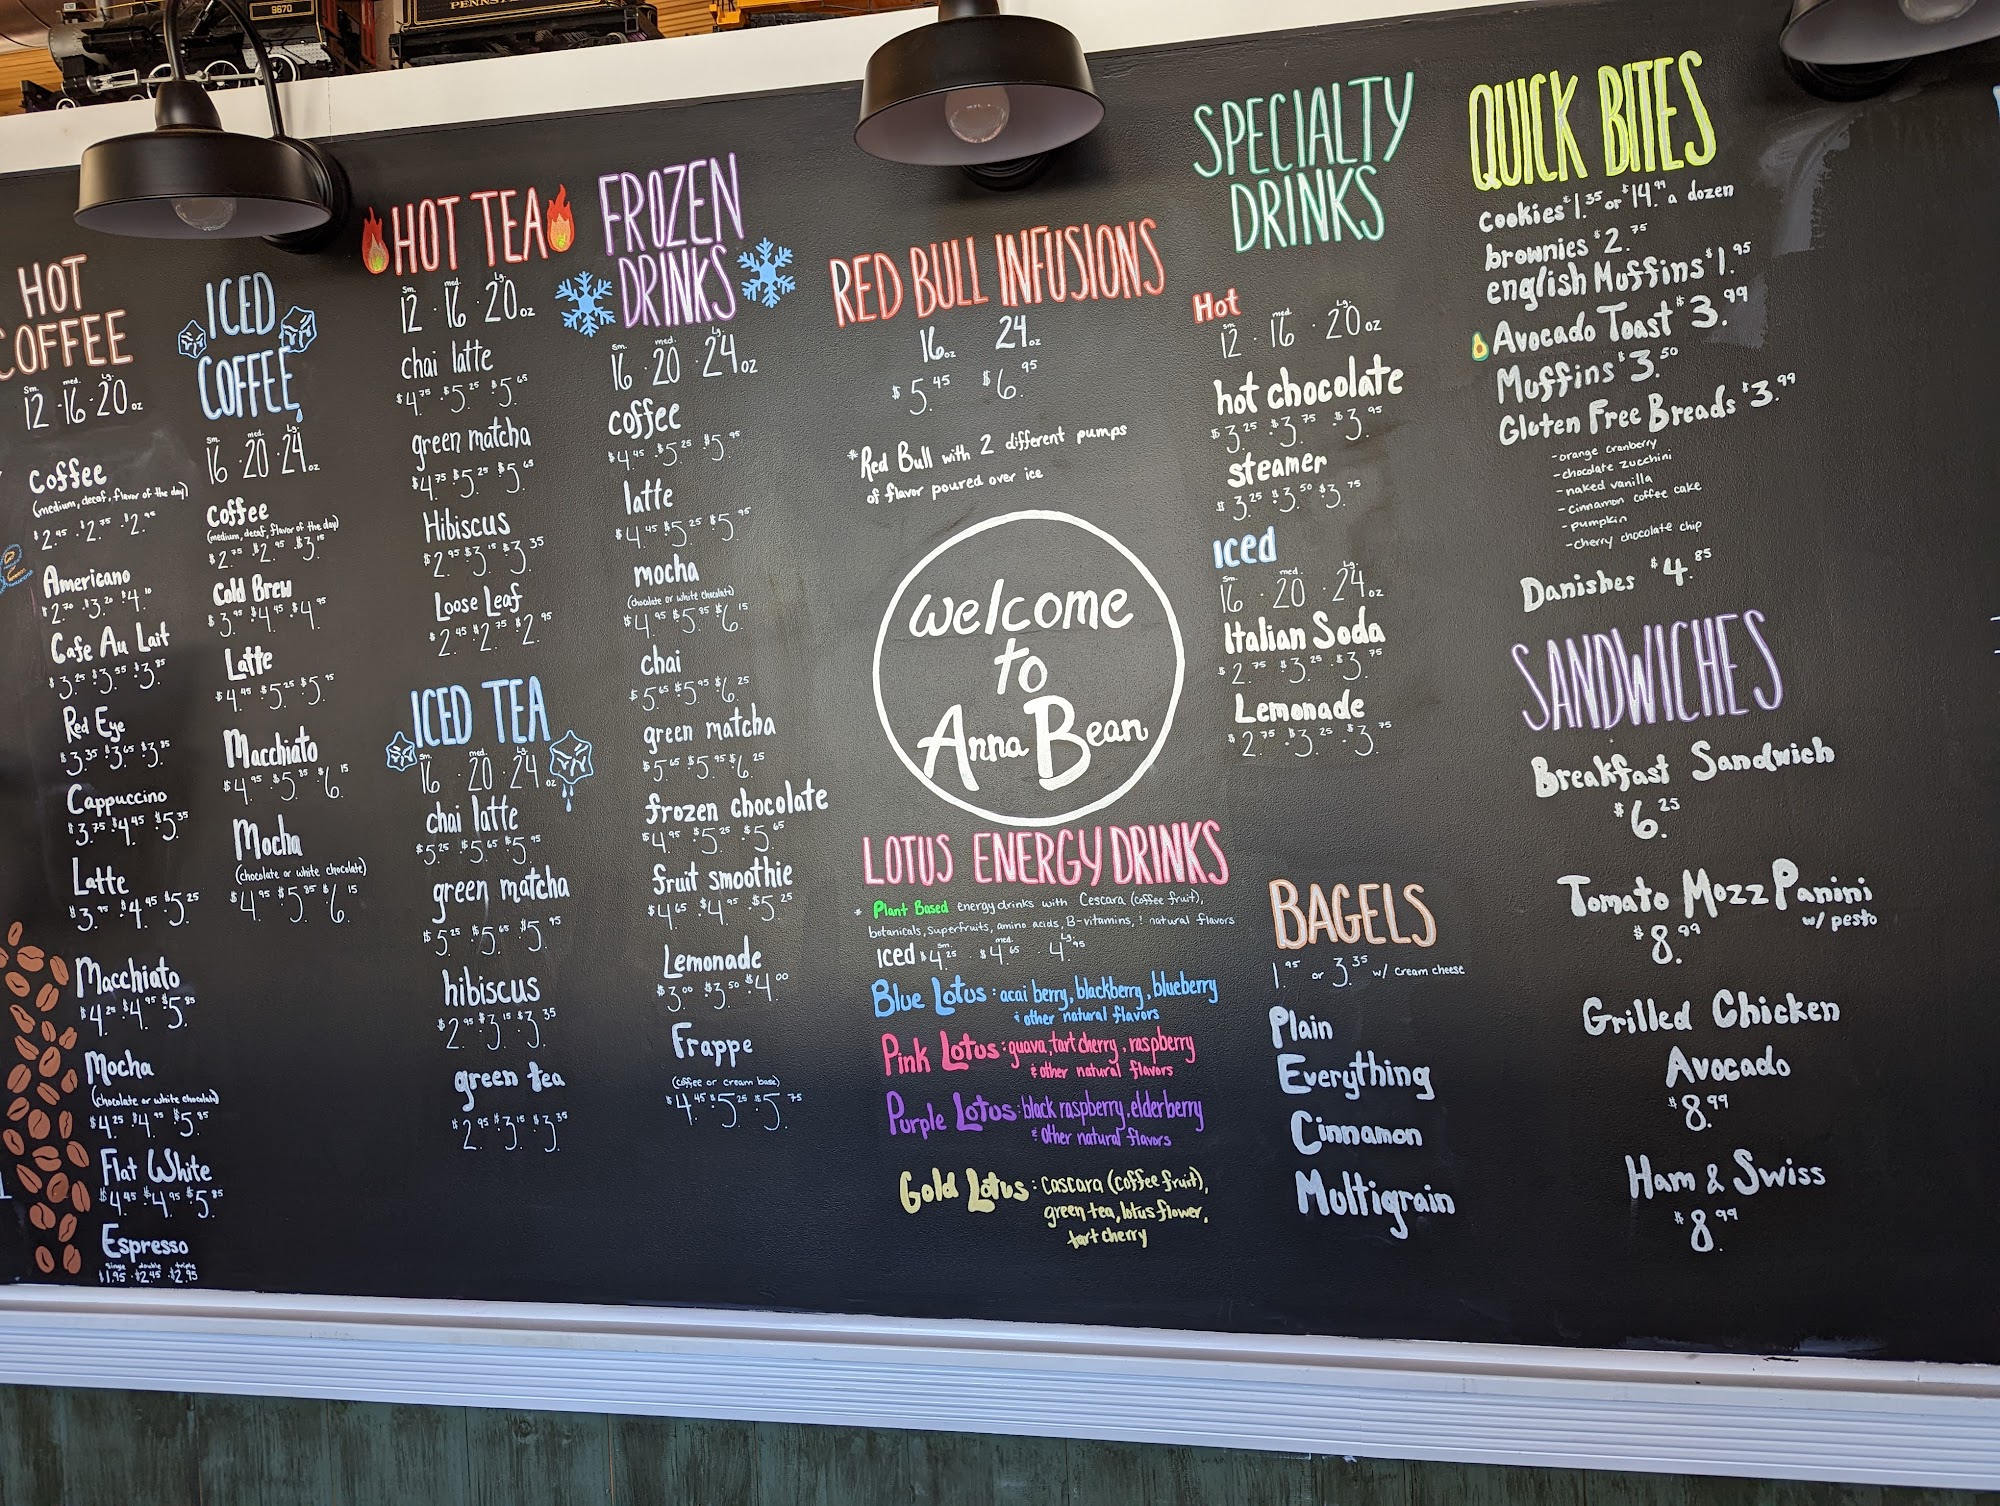 9670
HOT
COFFEE
Sm. med. Lg.
12 · 16 · 20 oz
Coffee
(medium, decaf, flavor of the day)
$2.45 · $2.75 · $2.95
Americano
$2.70 · $3.20 · $4.10
Cafe Au Lait
$3.25 · $3.55 · $3.85
Red Eye
$3.35 · $3.65 · $3.85
Cappuccino
$3.75 · $4.45 · $5.35
Latte
$3.95 · $4.45 · $5.25
Macchiato
$4.25 · $4.95 · $5.85
Mocha
(chocolate or white chocolate)
$4.25 · $4.95 · $5.85
Flat White
$4.45 · $4.95 · $5.85
Espresso
single double triple
$1.95 · $2.45 · $2.95
ICED
COFFEE
Sm. med. Lg.
16 · 20 · 24 oz
Coffee
(medium, decaf, flavor of the day)
$2.75 · $2.95 · $3.15
Cold Brew
$3.95 · $4.45 · $4.95
Latte
$4.45 · $5.25 · $5.95
Macchiato
$4.95 · $5.85 · $6.15
Mocha
(chocolate or white chocolate)
$4.95 · $5.85 · $6.15
HOT TEA
Sm. med. Lg.
12 · 16 · 20 oz
chai latte
$4.75 · $5.25 · $5.65
green matcha
$4.75 · $5.25 · $5.65
Hibiscus
$2.95 · $3.15 · $3.35
Loose Leaf
$2.45 · $2.75 · $2.95
ICED TEA
Sm. med. Lg.
16 · 20 · 24 oz
chai latte
$5.25 · $5.65 · $5.95
green matcha
$5.25 · $5.65 · $5.95
hibiscus
$2.95 · $3.15 · $3.35
green tea
$2.95 · $3.15 · $3.35
FROZEN
DRINKS
Sm. med. Lg.
16 · 20 · 24 oz
coffee
$4.45 · $5.25 · $5.95
latte
$4.45 · $5.25 · $5.95
mocha
(chocolate or white chocolate)
$4.95 · $5.85 · $6.15
chai
$5.65 · $5.95 · $6.25
green matcha
$5.65 · $5.95 · $6.25
frozen chocolate
$4.95 · $5.25 · $5.65
fruit smoothie
$4.65 · $4.95 · $5.25
Lemonade
$3.00 · $3.50 · $4.00
Frappe
(coffee or cream base)
$4.45 · $5.25 · $5.75
RED BULL INFUSIONS
16oz 24oz
$5.45 $6.95
*Red Bull with 2 different pumps
of flavor poured over ice
Welcome
to
Anna Bean
LOTUS ENERGY DRINKS
* Plant Based energy drinks with Cescara (coffee fruit),
botanicals, superfruits, amino acids, B-vitamins, & natural flavors
Sm. med. Lg.
Iced $4.25 · $4.65 · 4.95
Blue Lotus: acai berry, blackberry, blueberry
& other natural flavors
Pink Lotus: guava, tart cherry, raspberry
& other natural flavors
Purple Lotus: black raspberry, elderberry
& other natural flavors
Gold Lotus: Cascara (coffee fruit),
green tea, lotus flower,
tart cherry
SPECIALTY
DRINKS
Hot
Sm. med. Lg.
12 · 16 · 20 oz
hot chocolate
$3.25 · $3.75 · $3.95
steamer
$3.25 · $3.50 · $3.75
Iced
Sm. med. Lg.
16 · 20 · 24 oz
Italian Soda
$2.75 · $3.25 · $3.75
Lemonade
$2.75 · $3.25 · $3.75
BAGELS
1.95 or 3.35 w/ cream cheese
Plain
Everything
Cinnamon
Multigrain
QUICK BITES
cookies $1.35 or $14.99 a dozen
brownies $2.75
english Muffins $1.95
Avocado Toast $3.99
Muffins $3.50
Gluten Free Breads $3.99
-orange cranberry
-chocolate zucchini
-naked vanilla
-cinnamon coffee cake
-pumpkin
-cherry chocolate chip
Danishes $4.85
SANDWICHES
Breakfast Sandwich
$6.25
Tomato Mozz Panini
w/ pesto
$8.99
Grilled Chicken
Avocado
$8.99
Ham & Swiss
$8.99